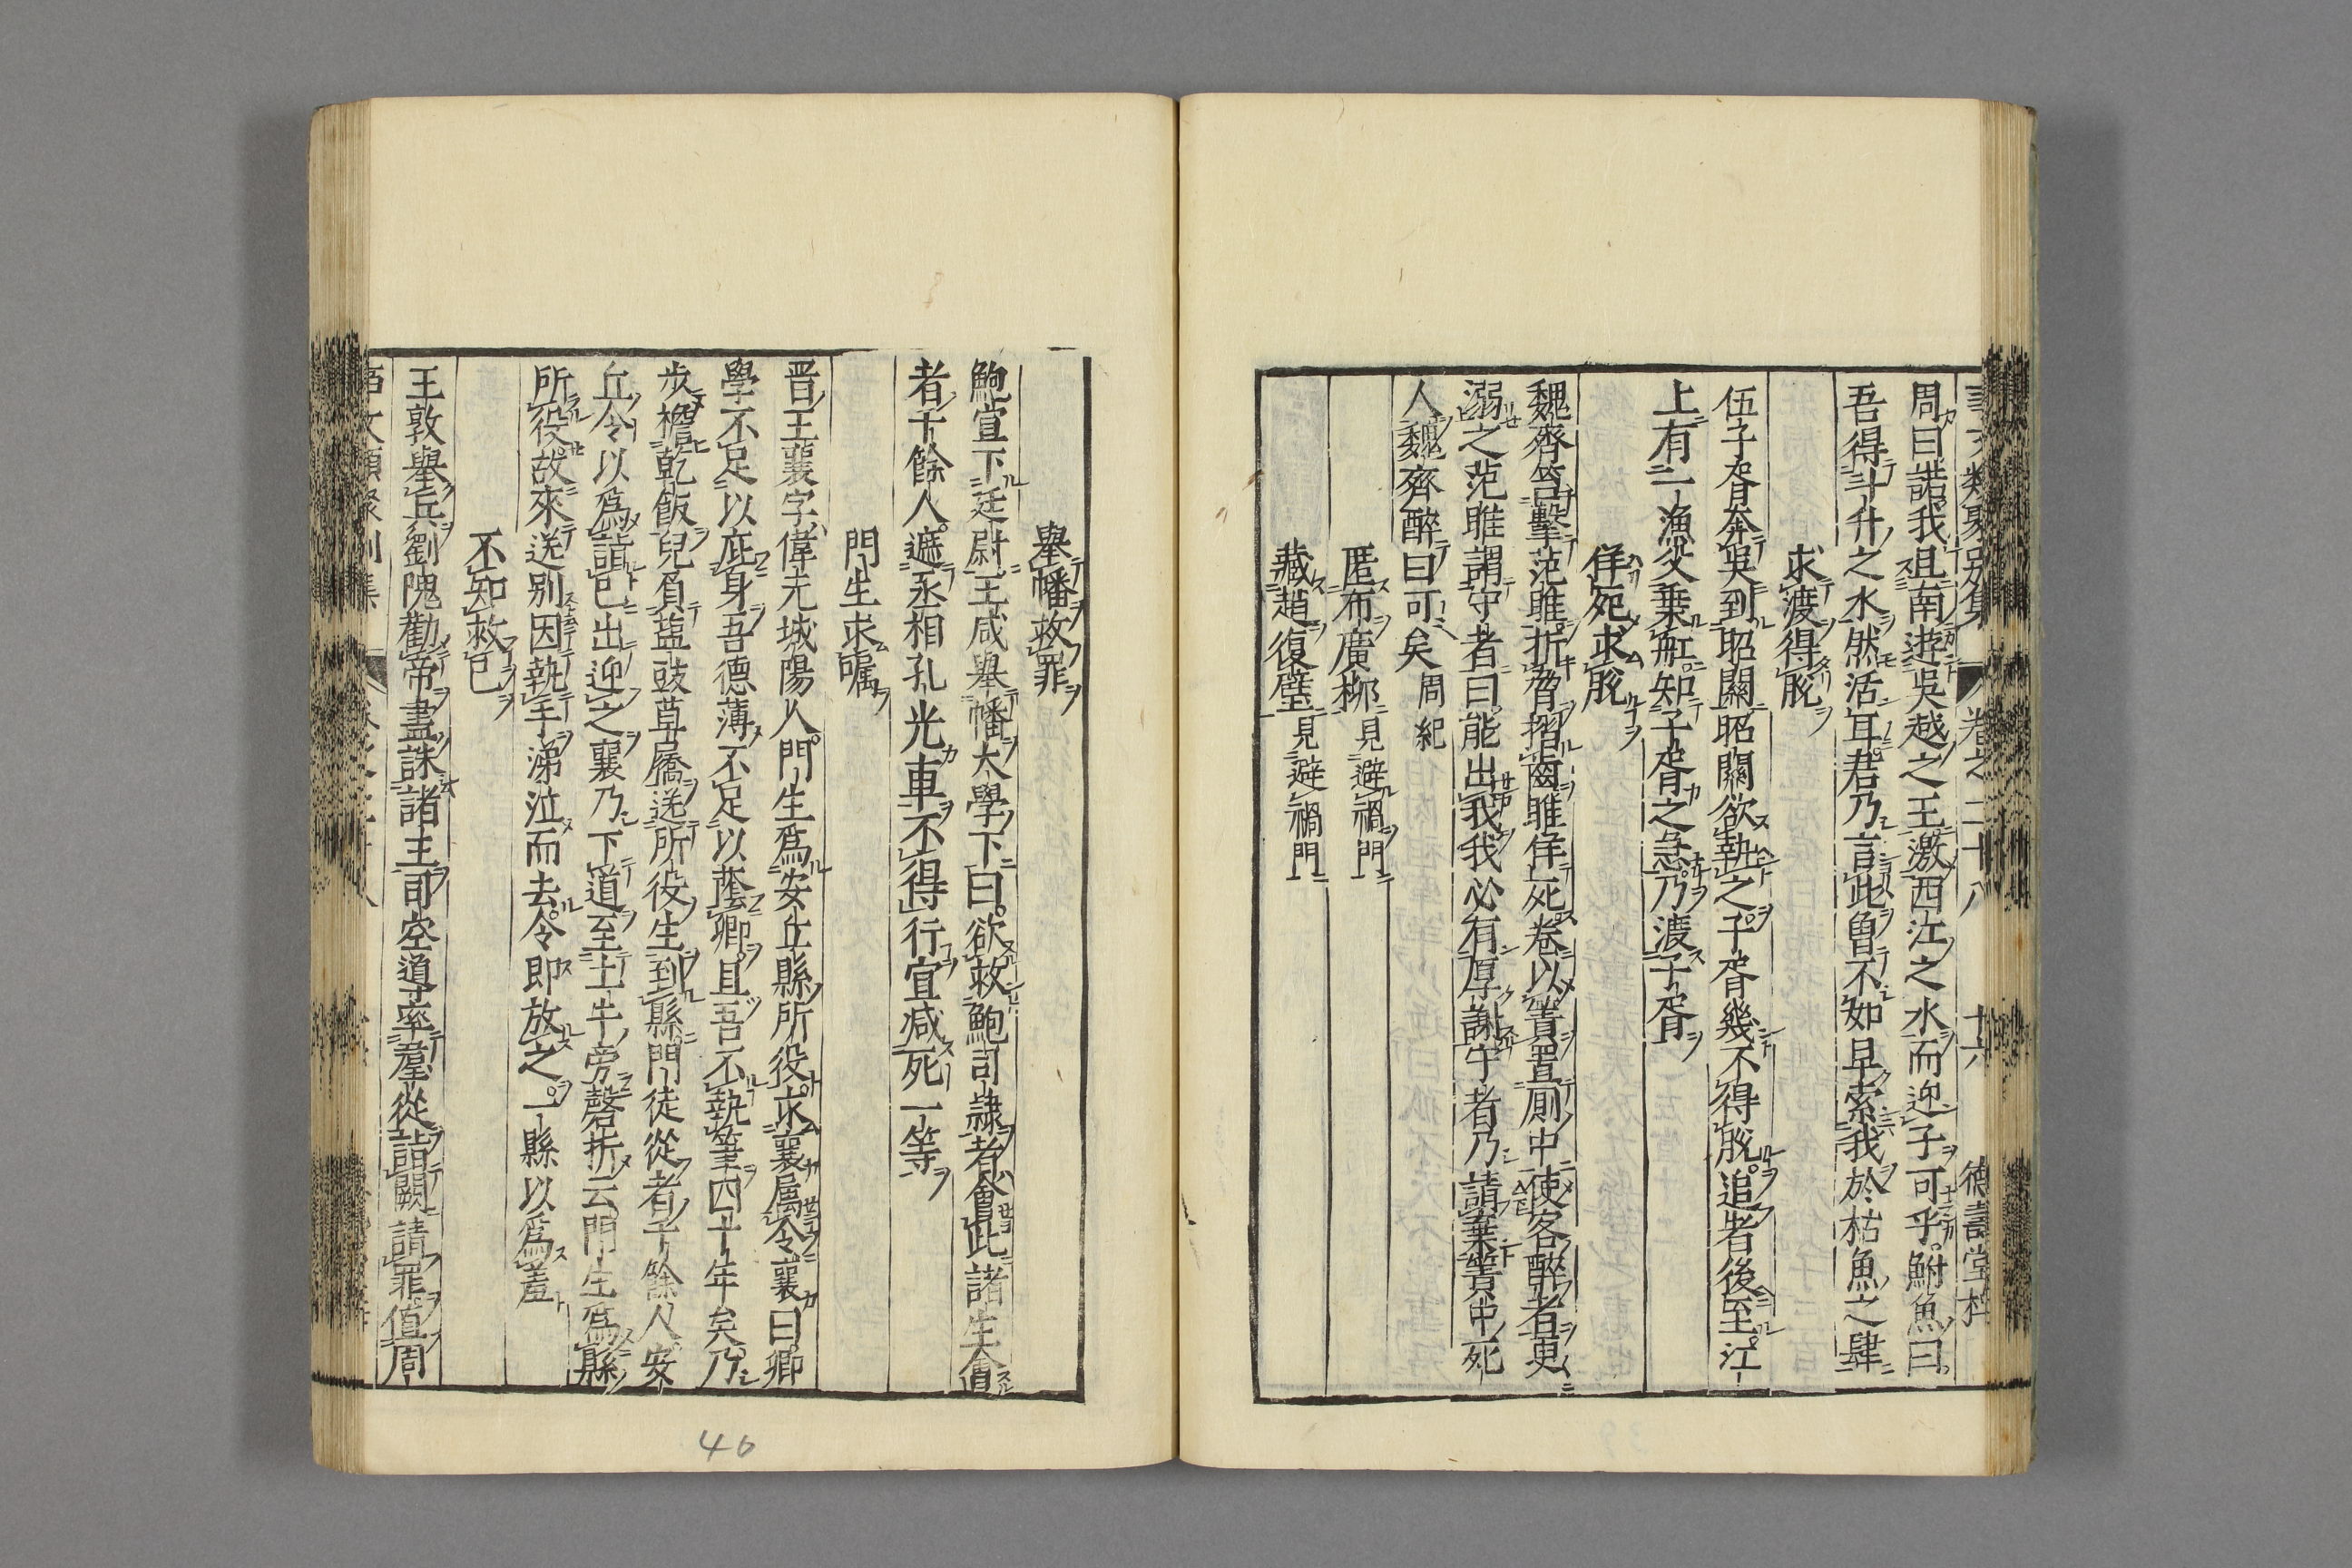 事文類聚別集 卷之二十八 十六 德壽堂梓
周曰諾我且南遊吳越之王激西江之水而迎子可乎鮒魚曰
吾得斗升之水然活耳君乃言此曾不如早索我於枯魚之肆
求渡得脫
伍子胥奔吳到昭關昭關欲執之子胥幾不得脫追者後至江
上有一漁父乗舡知子胥之急乃渡子胥
佯死求脫
魏齊笞擊范雎折脅摺齒雎佯死卷以簀置厠中使客醉者更
溺之范雎謂守者曰能出我我必有厚謝守者乃請棄簀中死
人魏齊醉曰可矣周紀
匿布廣柳見避禍門
藏趙復壁見避禍門
舉幡救罪
鮑宣下廷尉王咸舉幡大學下曰欲救鮑司隷者會此諸生會
者千餘人遮丞相孔光車不得行宣减死一等
門生求囑
晋王裒字偉元城陽人門生爲安丘縣所役求襄属令襄曰卿
學不足以庇身吾德薄不足以蔭卿且吾不執筆四十年矣乃
步檐乾飯兒負盐豉草屩送所役生到縣門徒從者千餘人安
丘令以爲詣己出迎之襄乃下道至土牛旁磬折云門生爲縣
所役故來送别因執手涕泣而去令即放之一縣以爲羞
不知救己
王敦舉兵劉隗勸帝盡誅諸王司空導率羣從詣闕請罪值周
40